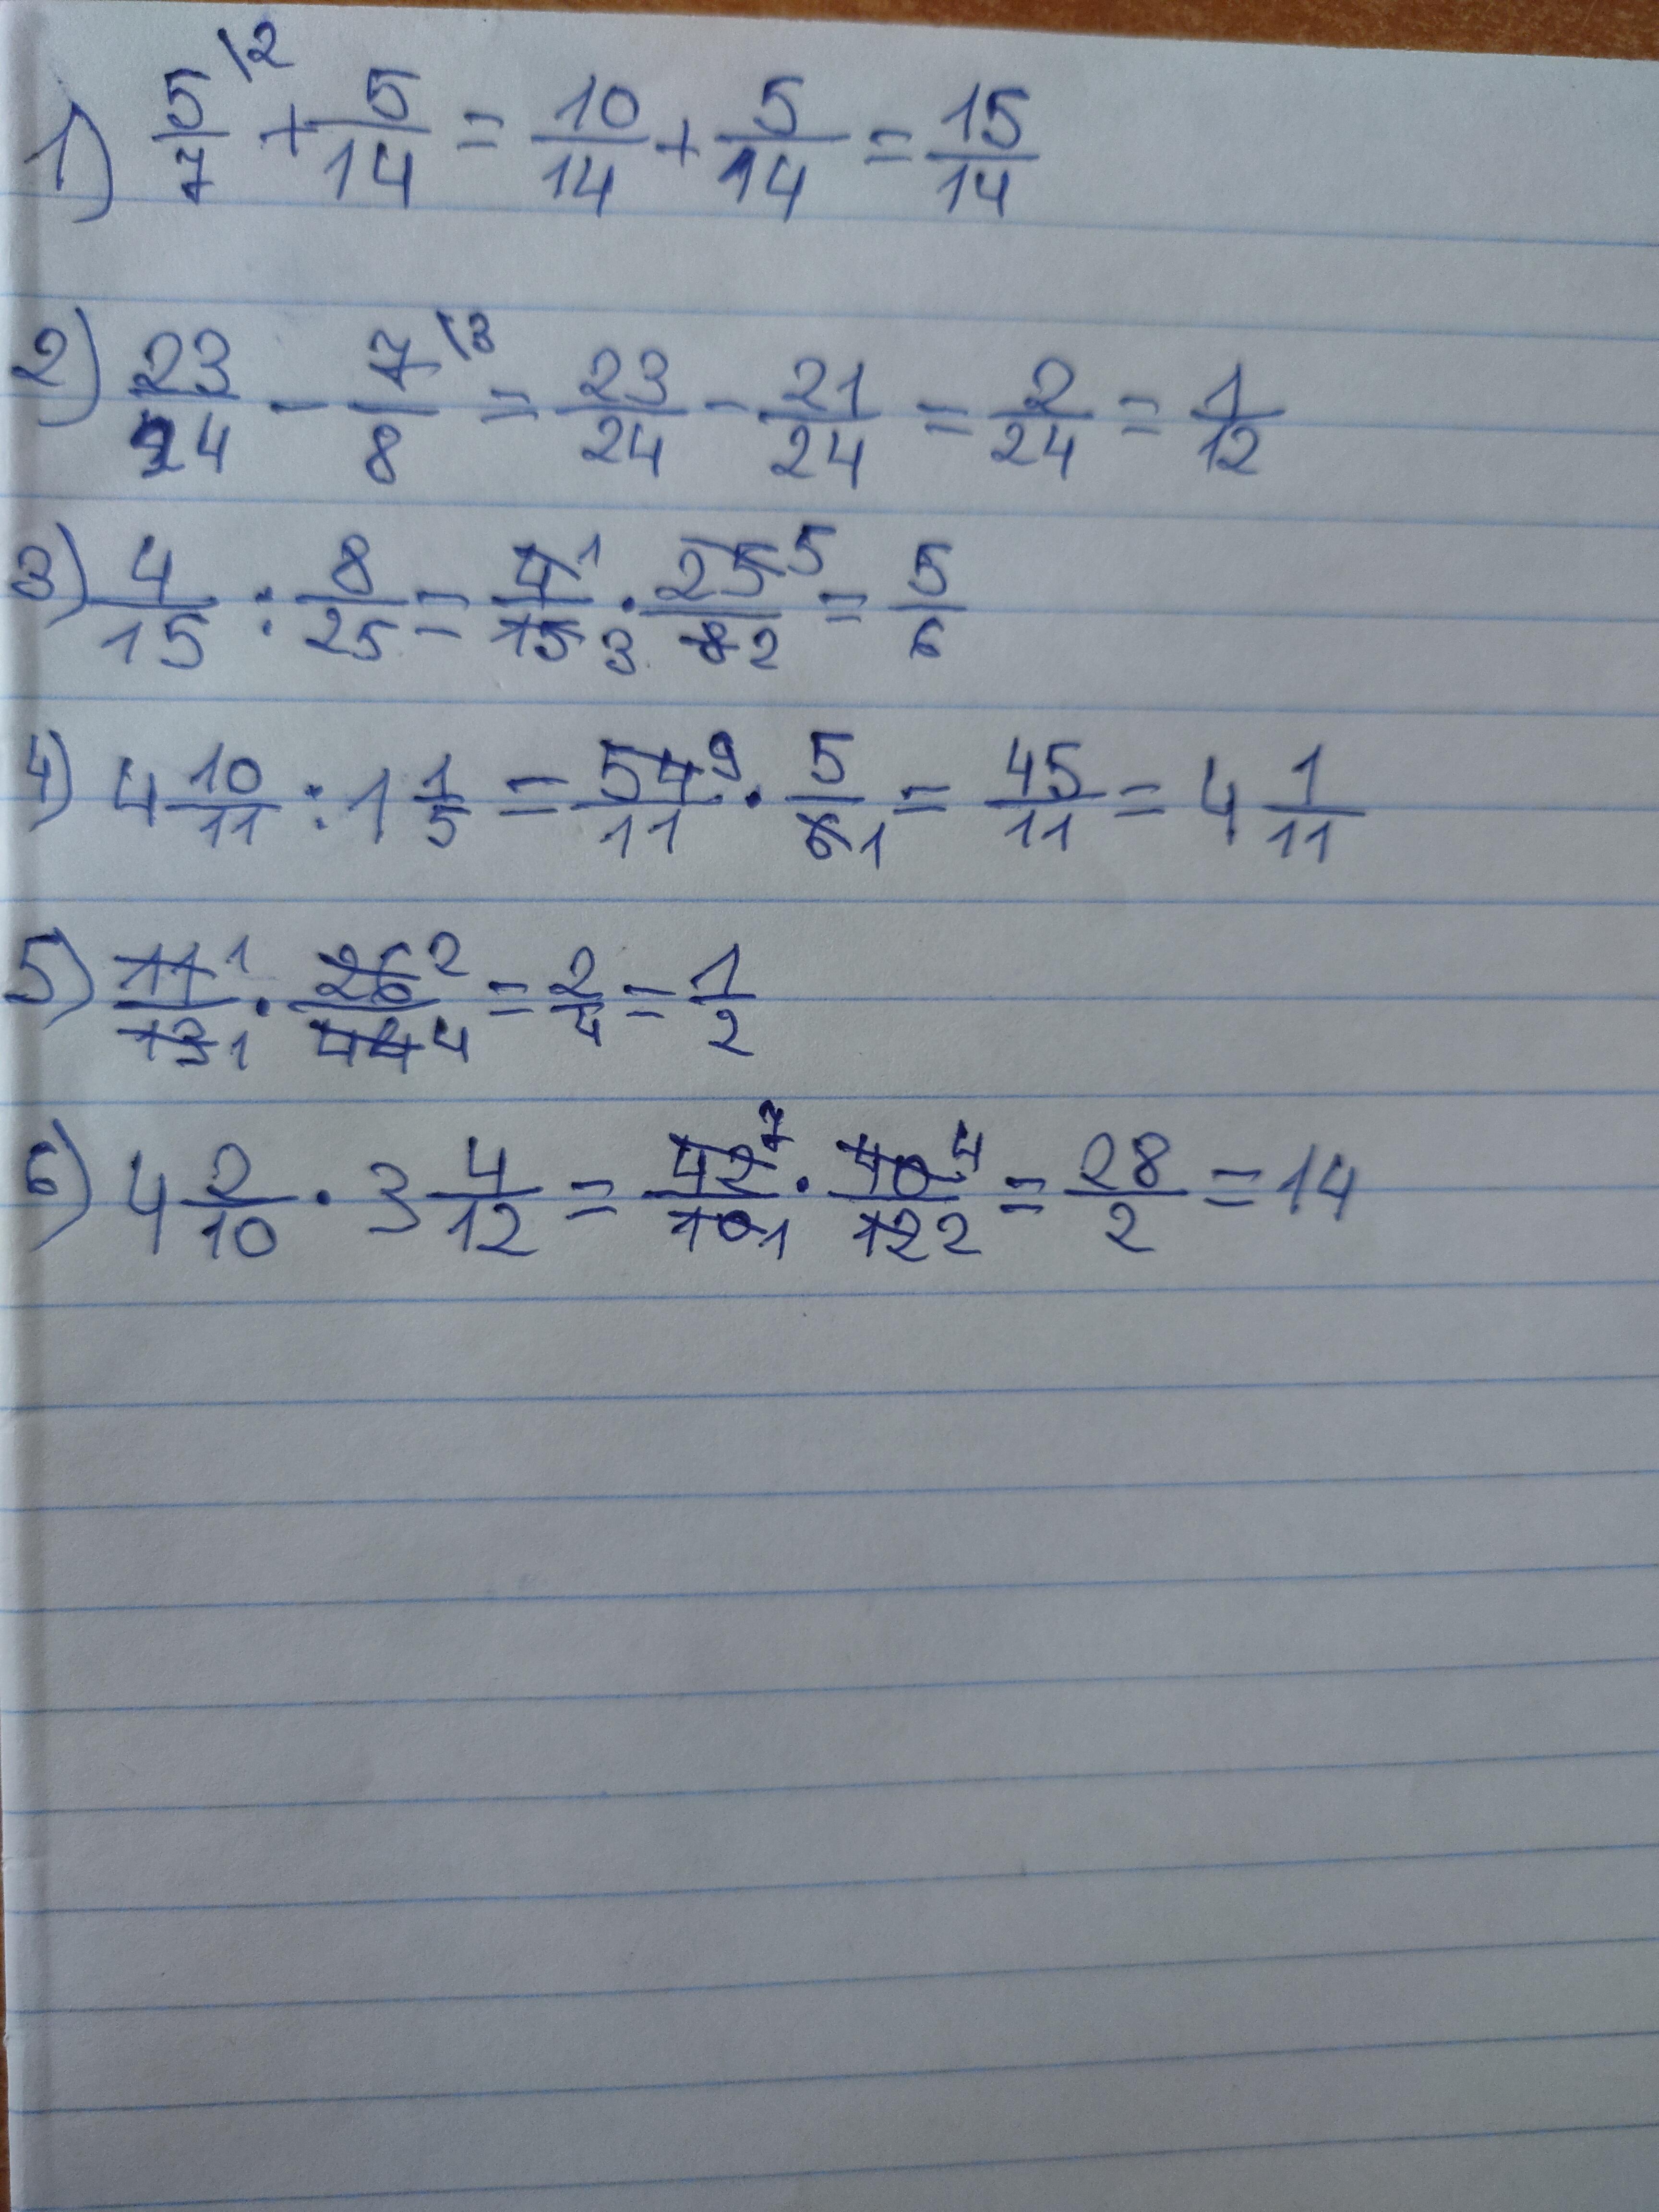 1) 5/7 \2 + 5/14 = 10/14 + 5/14 = 15/14
2) 23/24 - 7/8 \3 = 23/24 - 21/24 = 2/24 = 1/12
3) 4/15 : 8/25 = 4 1/15 3 · 25 5/8 2 = 5/6
4) 4 10/11 : 1 1/5 = 54 9/11 · 5/6 1 = 45/11 = 4 1/11
5) 11 1/13 1 · 26 2/44 4 = 2/4 = 1/2
6) 4 2/10 · 3 4/12 = 42 7/10 1 · 40 4/12 2 = 28/2 = 14